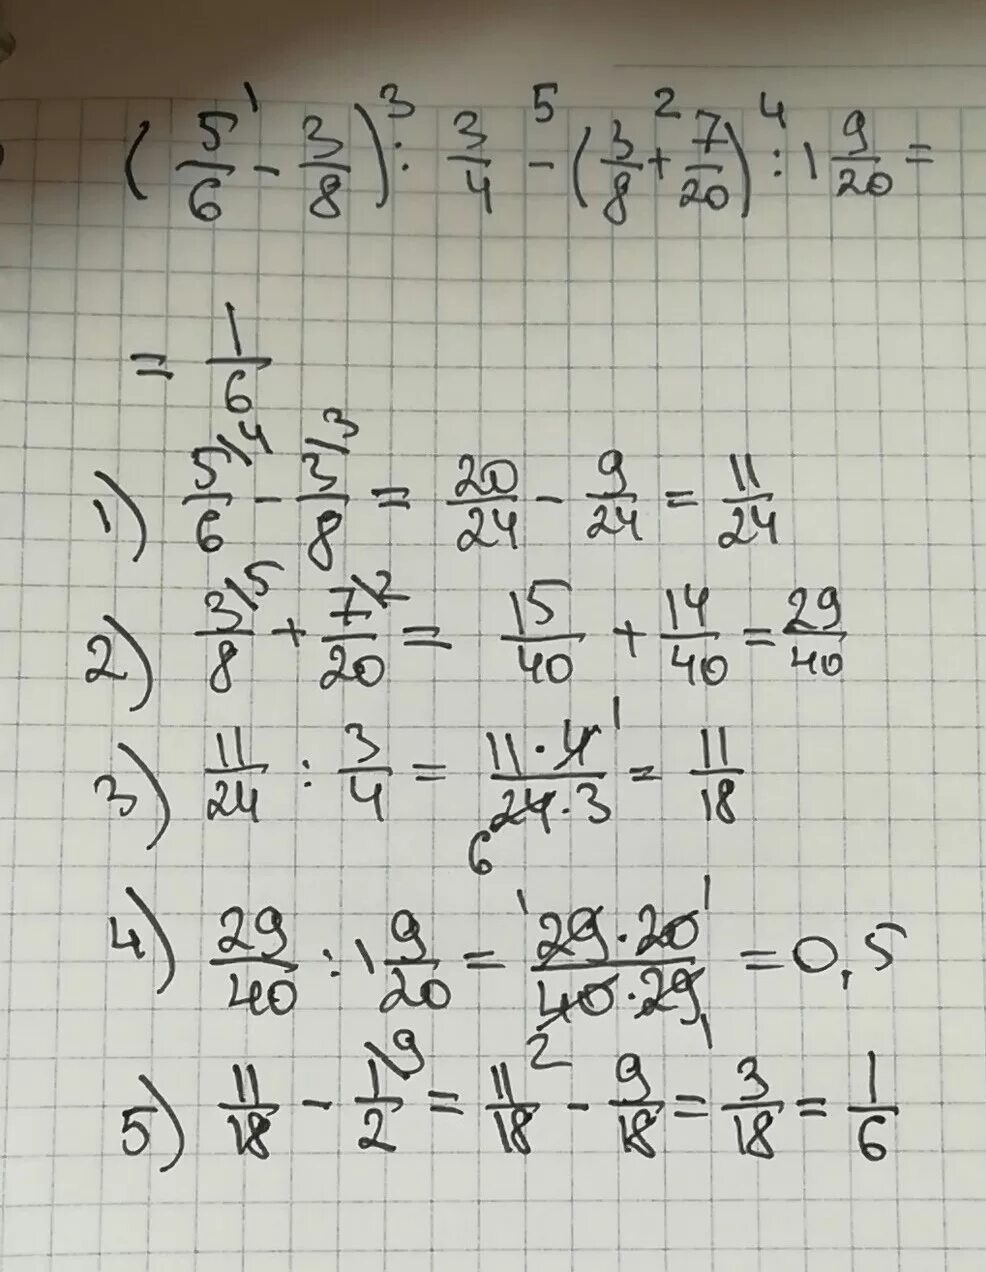 (5/6 - 3/8) : 3/4 - (3/8 + 7/20) : 1 9/20 =
= 1/6
1) 5/6 - 3/8 = 20/24 - 9/24 = 11/24
2) 3/8 + 7/20 = 15/40 + 14/40 = 29/40
3) 11/24 : 3/4 = 11·4/24·3 = 11/18
4) 29/40 : 1 9/20 = 29·20/40·29 = 0,5
5) 11/18 - 1/2 = 11/18 - 9/18 = 3/18 = 1/6